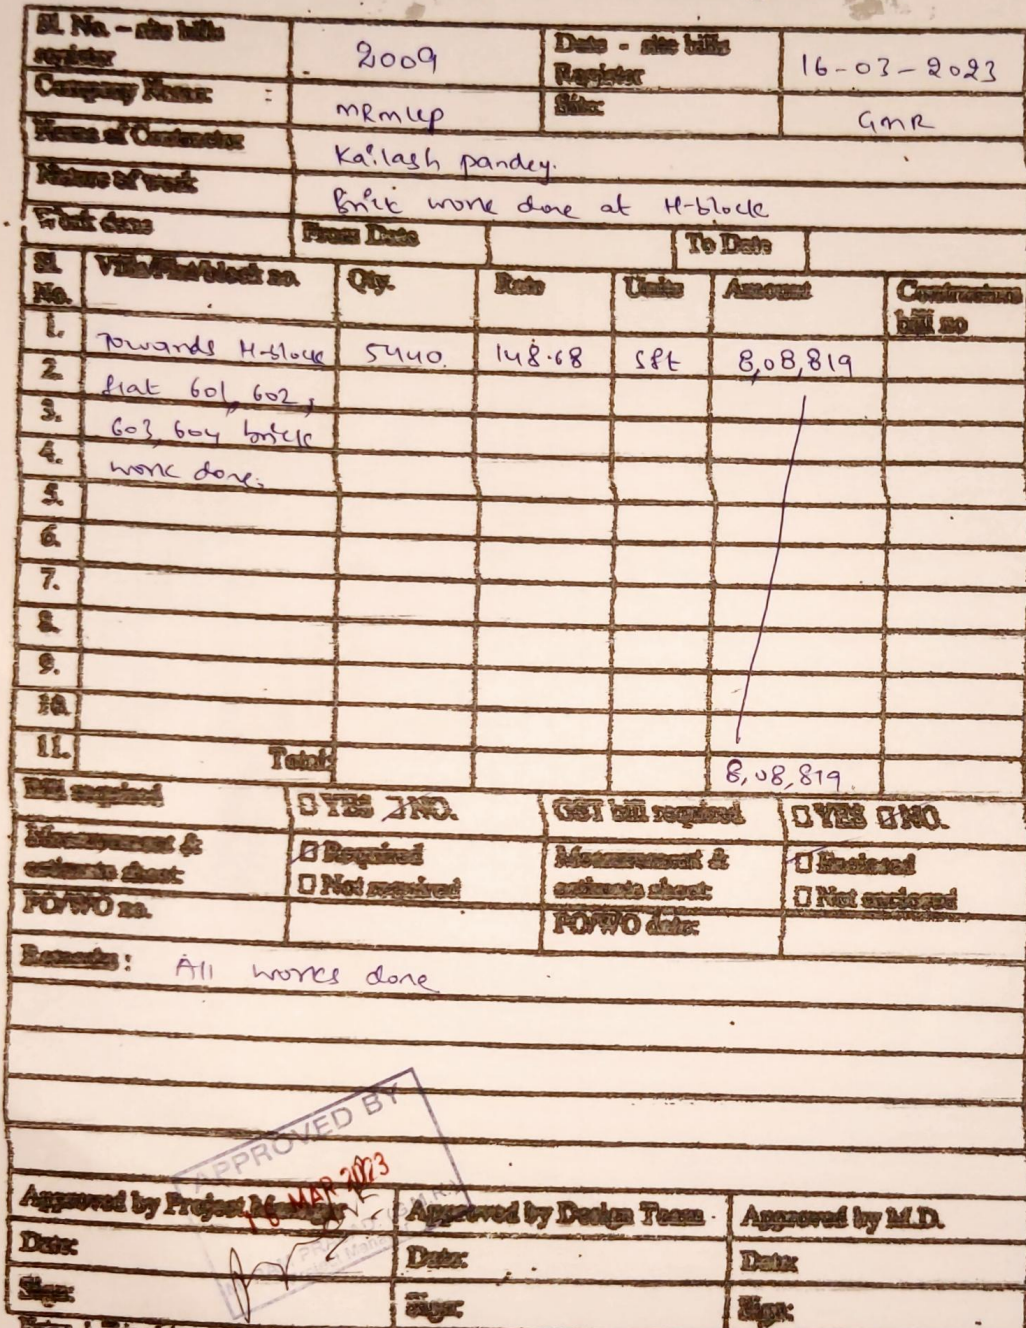 Sl. No. - site bills register 2009 Date - site bills Register 16-03-2023
Company Name: MRMLLP Site: GMR
Name of Contractor Kailash pandey.
Nature of work Brick work done at H-block
Work done From Date To Date
Sl. No. Villa/Flat/block no. Qty. Rate Units Amount Contractors bill no
1. Towards H-block 5440. 148.68 Sft 8,08,819
2. flat 601, 602,
3. 603, 604 brick
4. work done.
5.
6.
7.
8.
9.
10.
11. Total: 8,08,819
Bill required YES NO. GST bill required YES NO.
Measurement & estimate sheet Required Not required Measurement & estimate sheet: Enclosed Not enclosed
PO/WO no. PO/WO date:
Remarks: All works done
APPROVED BY
16 MAR 2023
Approved by Project Manager Approved by Design Team Approved by M.D.
Date: Date: Date:
Sign: Sign: Sign: